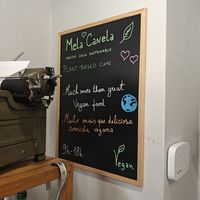 Mela Canela
HEALTHY LOCAL SUSTAINABLE
PLANT-BASED CAFE
Much more than great
Vegan food
Muito mais que deliciosa
comida vegana
9h-18h
Vegan